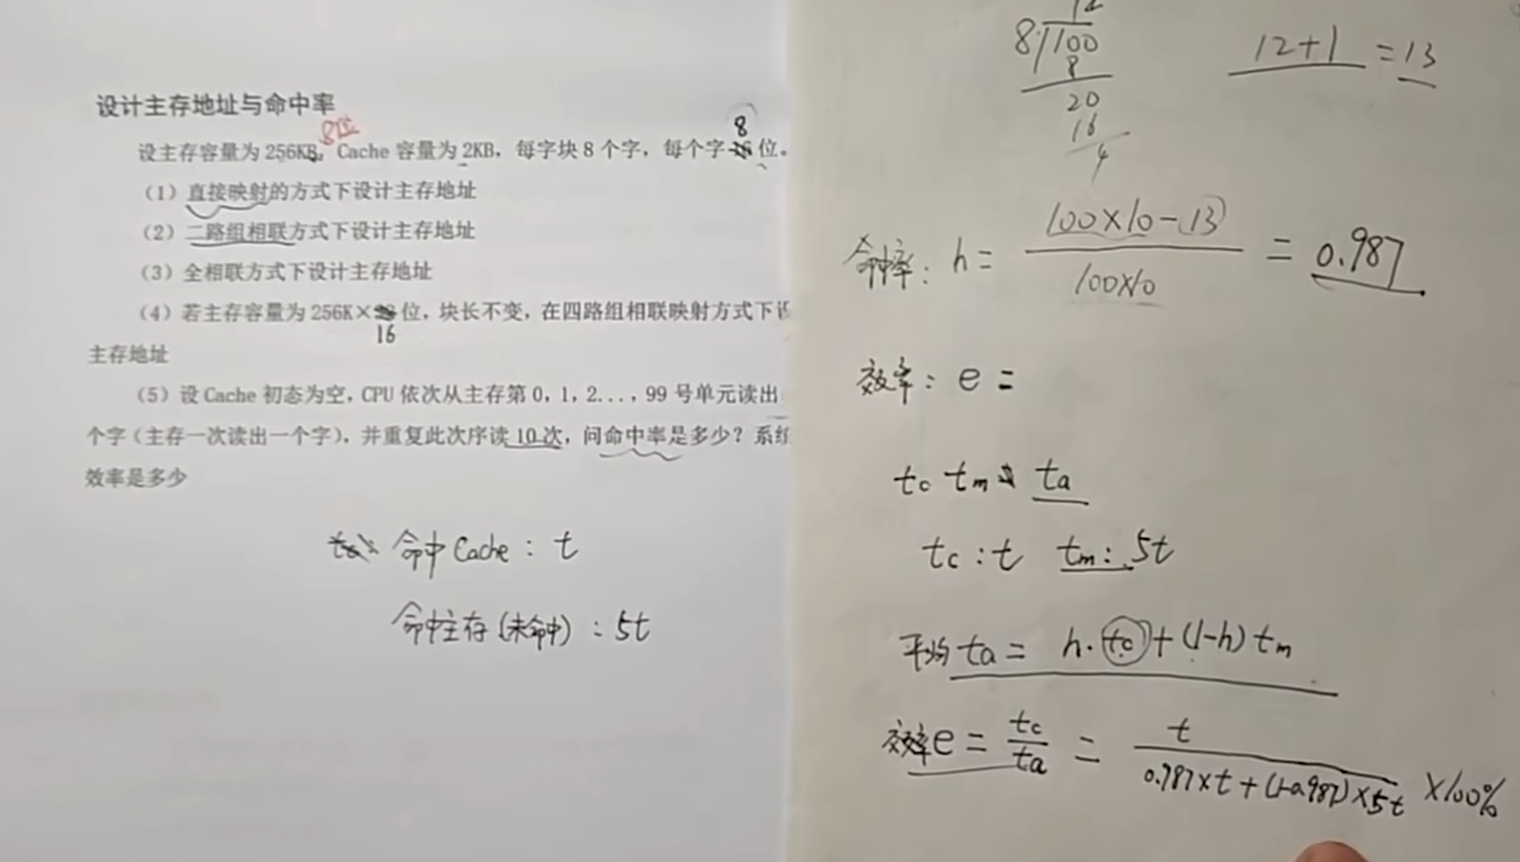 设计主存地址与命中率
8位
设主存容量为256KB,Cache容量为2KB,每字块8个字,每个字位。
8
(1)直接映射的方式下设计主存地址
(2)二路组相联方式下设计主存地址
(3)全相联方式下设计主存地址
(4)若主存容量为256K×位,块长不变,在四路组相联映射方式下设
16
主存地址
(5)设Cache初态为空,CPU依次从主存第0,1,2...,99号单元读出
个字(主存一次读出一个字),并重复此次序读10次,问命中率是多少?系统
效率是多少
命中Cache:t
命中主存(未命中):5t
12
8/100
8
20
16
4
12+1=13
命中率:h=
100×10-13
100×10
=0.987
效率:e=
tc tm ta
tc:t tm:5t
平均ta=h·tc+(1-h)tm
效率e=tc/ta=
t
0.987×t+(1-0.987)×5t
×100%